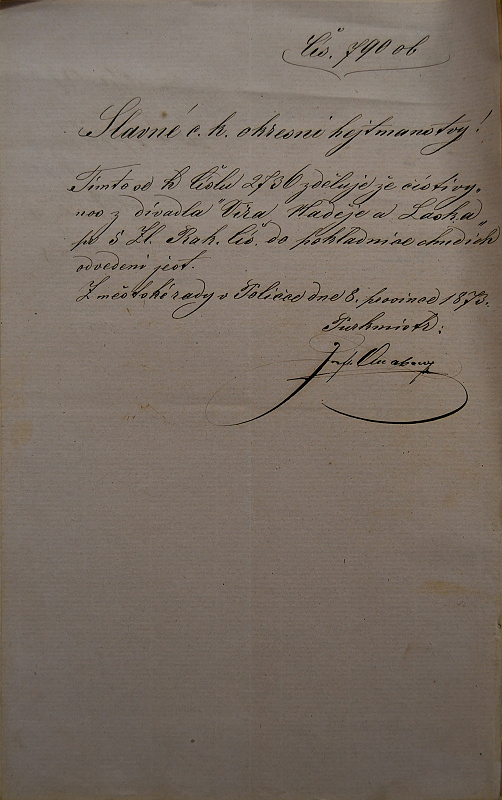 Čís. 790 ob
Slavné c. k. okresní hejtmanstvy!
Tímto se k číslu 2736 zděluje že čistivý-
nos z divadla "Víra, Naděje a Laska"
pr 5 Zl. Rak. Čís. do pokladnice chudich
odvedení jest.
Z městské rady v Poličce dne 8. prosince 1873.
Purkmistr:
Josef